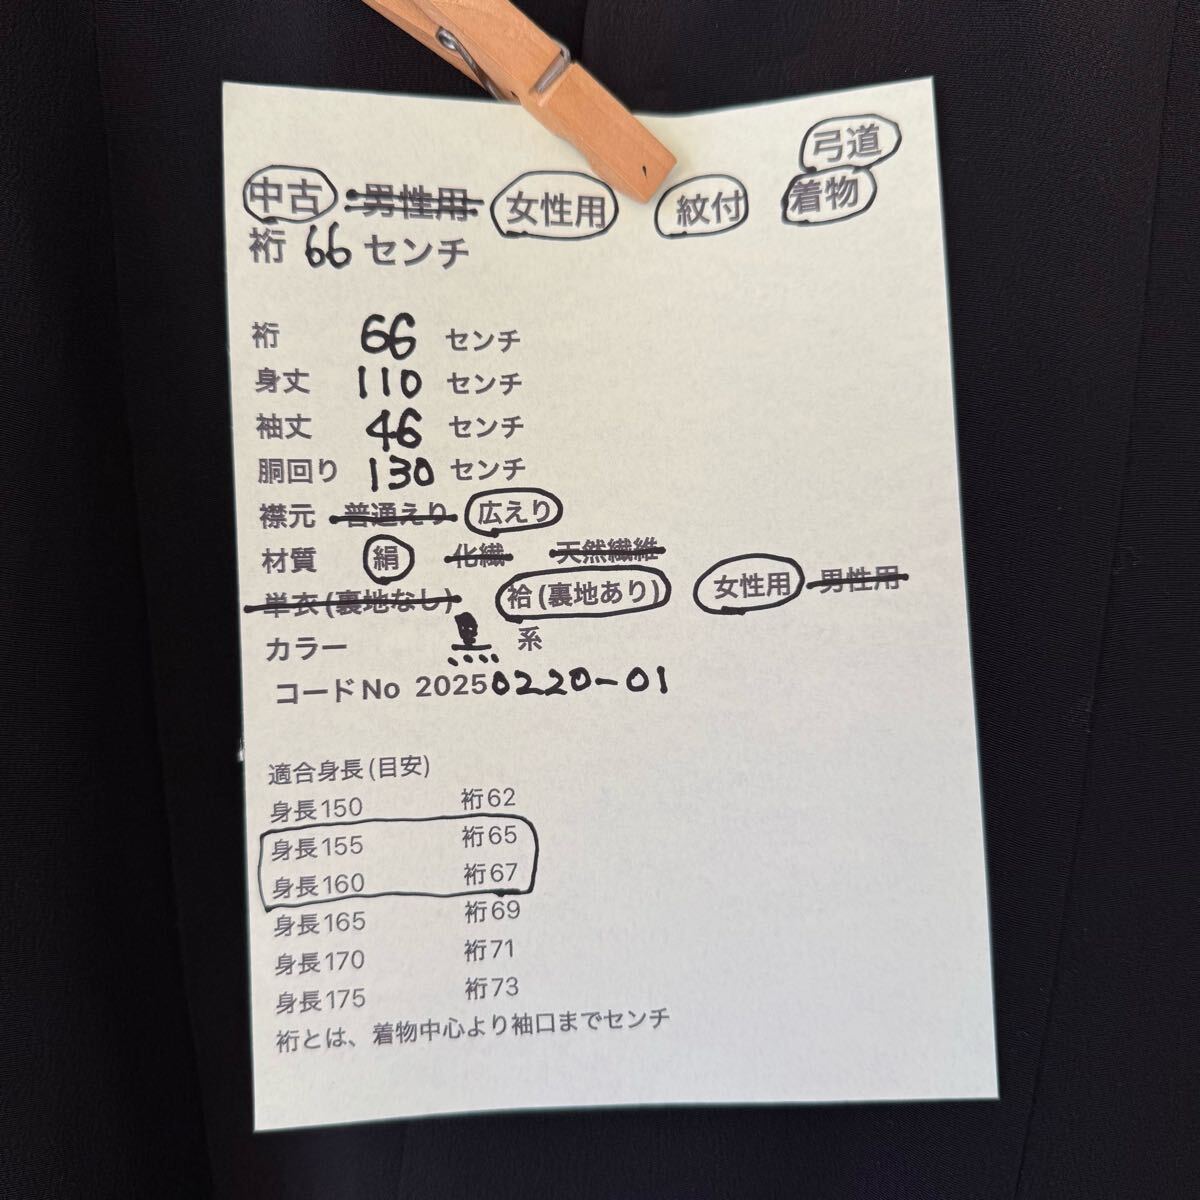 弓道
中古 男性用 女性用 紋付 着物
裄 66 センチ
裄 66 センチ
身丈 110 センチ
袖丈 46 センチ
胴回り 130 センチ
襟元 普通えり 広えり
材質 絹 化繊 天然繊維
単衣(裏地なし) 袷(裏地あり) 女性用 男性用
カラー 黒 系
コードNo 20250220-01
適合身長(目安)
身長150 裄62
身長155 裄65
身長160 裄67
身長165 裄69
身長170 裄71
身長175 裄73
裄とは、着物中心より袖口までセンチ